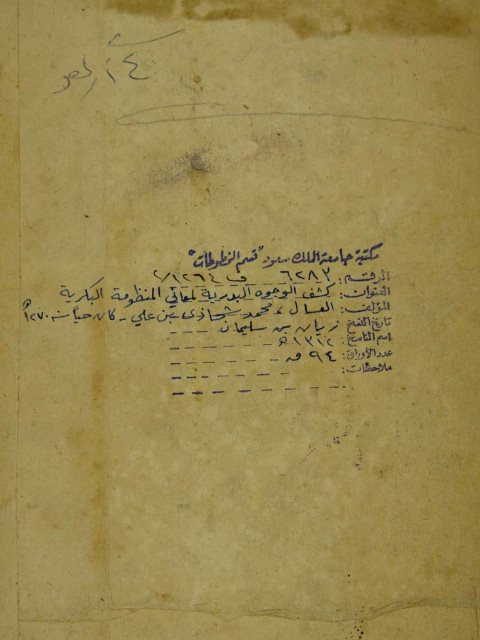 مكتبة جامعة الملك سعود "قسم المخطوطات"
الرقم: ٦٢٨٣ ف ٢/١٢٦٤
العنوان: كشف الوجوه البدرية لمعاني المنظومة البكرية
المؤلف: محمد بن علي - كان حيا سنة ١٢٧٠هـ
تاريخ النسخ: بن سليمان
اسم الناسخ: ١٣١٢هـ
عدد الأوراق: ٩٤ ق
ملاحظات: